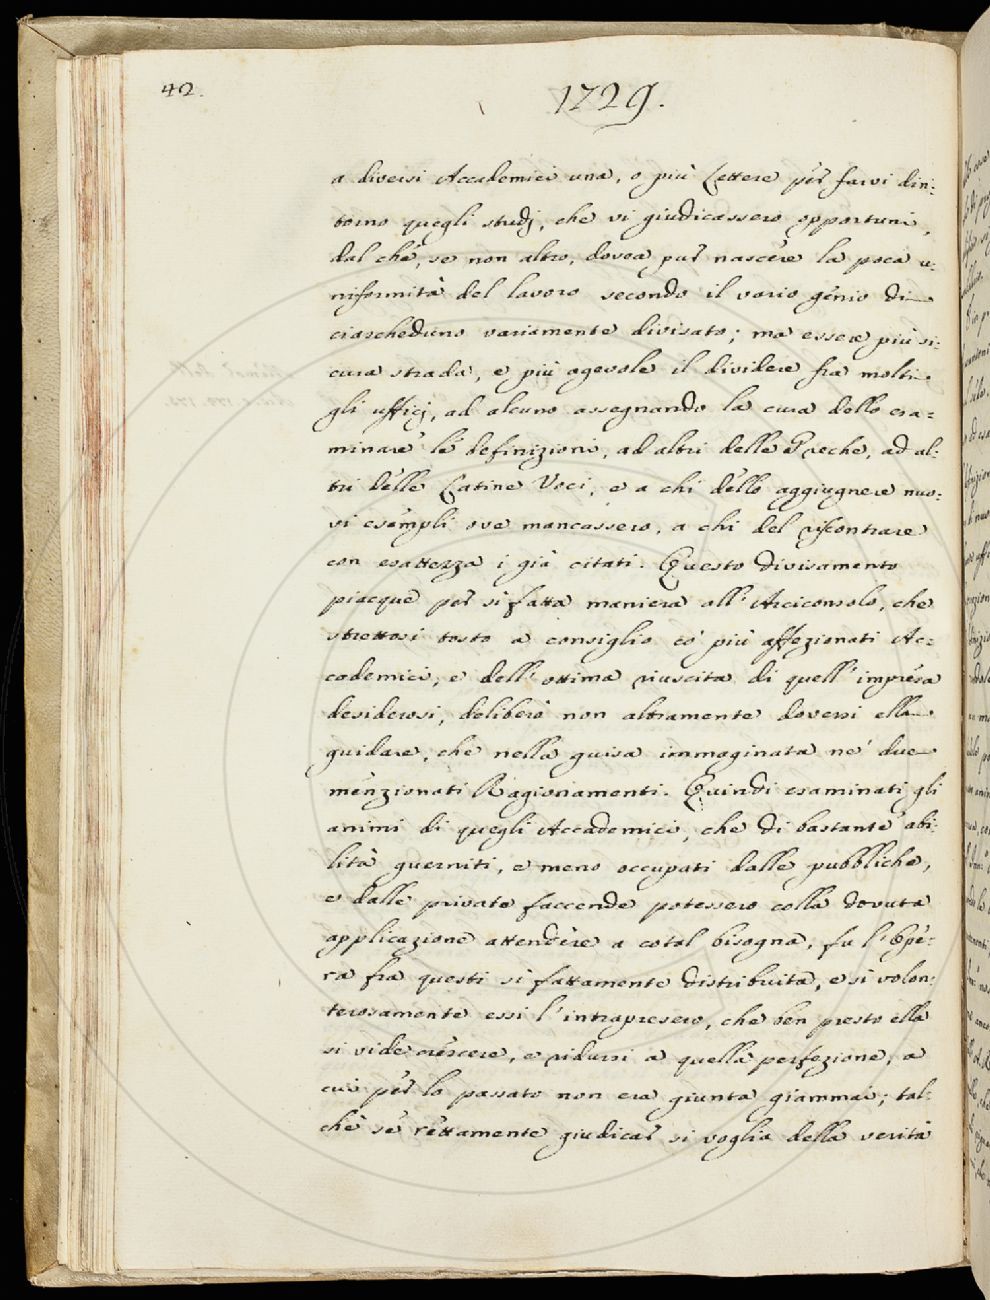 42.
1729.
a diversi Accademici una, o più Lettere per farvi din-
torno quegli studj, che vi giudicassero opportuni,
dal che, se non altro, dovea pur nascere la poca u-
niformità del lavoro secondo il vario genio di
ciascheduno variamente divisato; ma essere più si-
cura strada, e più agevole il dividere fra molti
gli ufficj, ad alcuno assegnando la cura dello esa-
minare le definizioni, ad altri delle Greche, ad al-
tri delle Latine Voci, e a chi dello aggiugnere nuo-
vi esempli ove mancassero, a chi del riscontrare
con esattezza i già citati. Questo divisamento
piacque per sì fatta maniera all' Arciconsolo, che
strettosi tosto a consiglio co' più affezionati Ac-
cademici, e dell' ottima riuscita di quell' impresa
desiderosi, deliberò non altramente doversi ella
guidare, che nella guisa immaginata ne' due
menzionati Ragionamenti. Quindi esaminati gli
animi di quegli Accademici, che di bastante abi-
lità guerniti, e meno occupati dalle pubbliche,
e dalle private faccende potessero colla dovuta
applicazione attendere a cotal bisogna, fu l' Ope-
ra fra questi sì fattamente distribuita, e sì volon-
terosamente essi l' intrapresero, che ben presto ella
si vide crescere, e ridursi a quella perfezione, a
cui per lo passato non era giunta giammai; tal-
chè se rettamente giudicar si voglia della verità